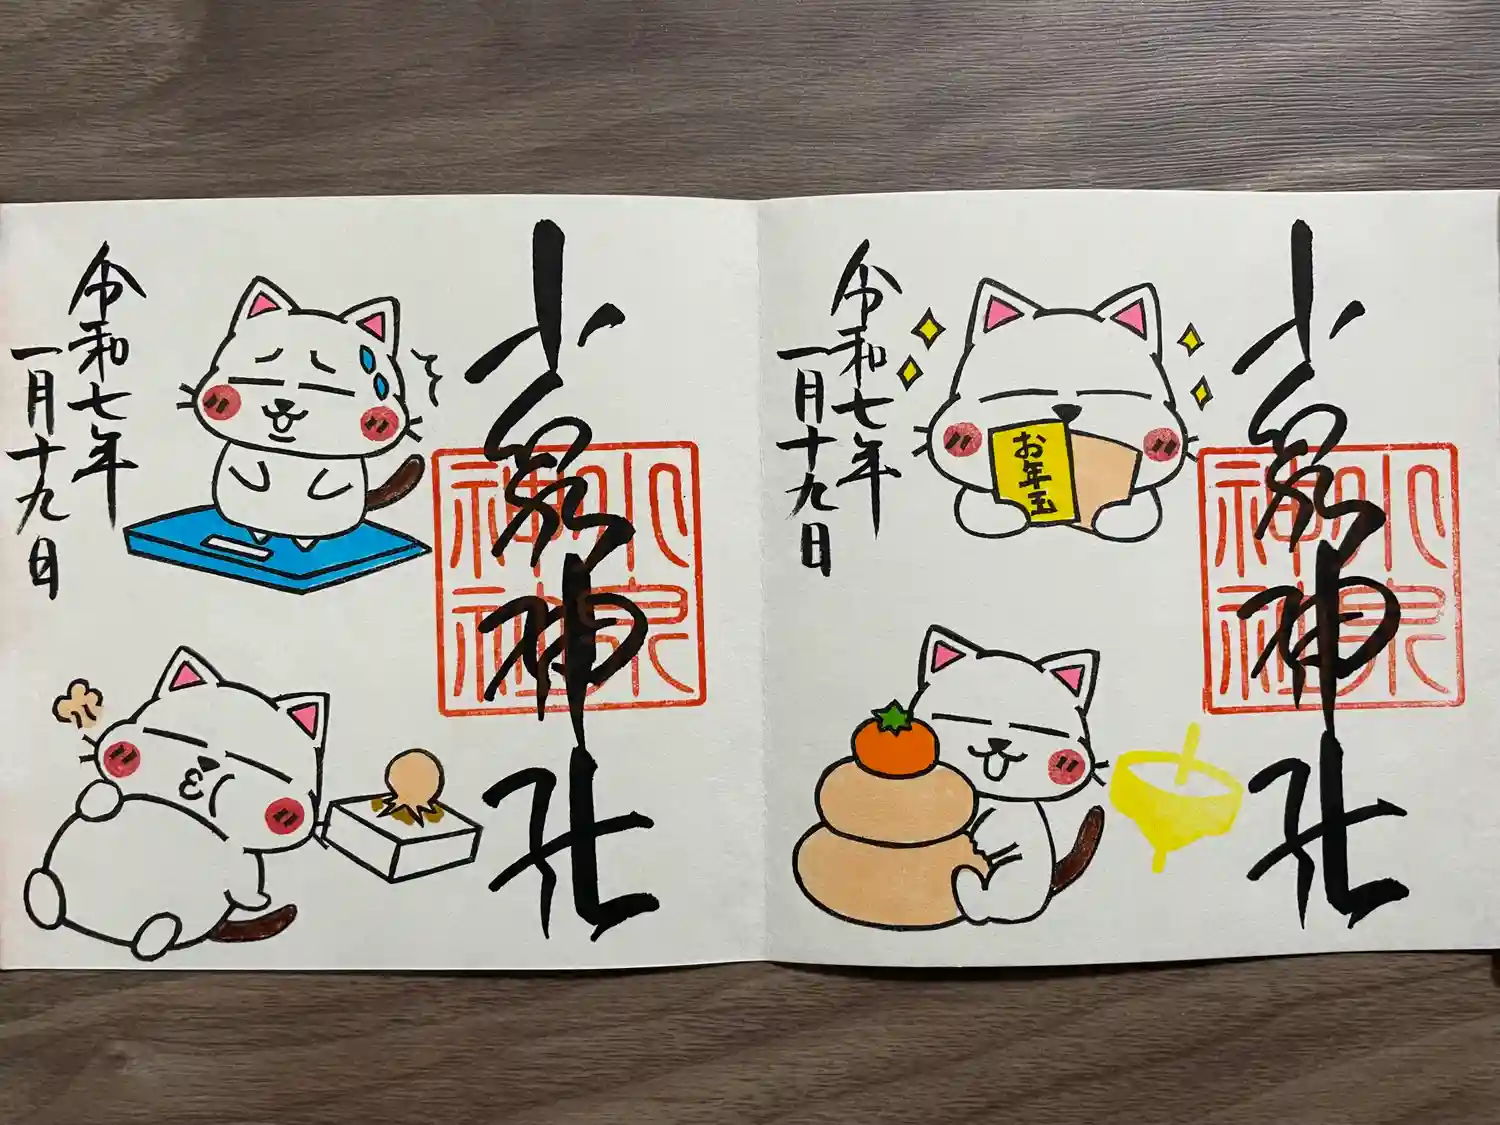 小泉神社
小泉
神社
お年玉
令和七年
一月十九日
小泉神社
小泉
神社
令和七年
一月十九日